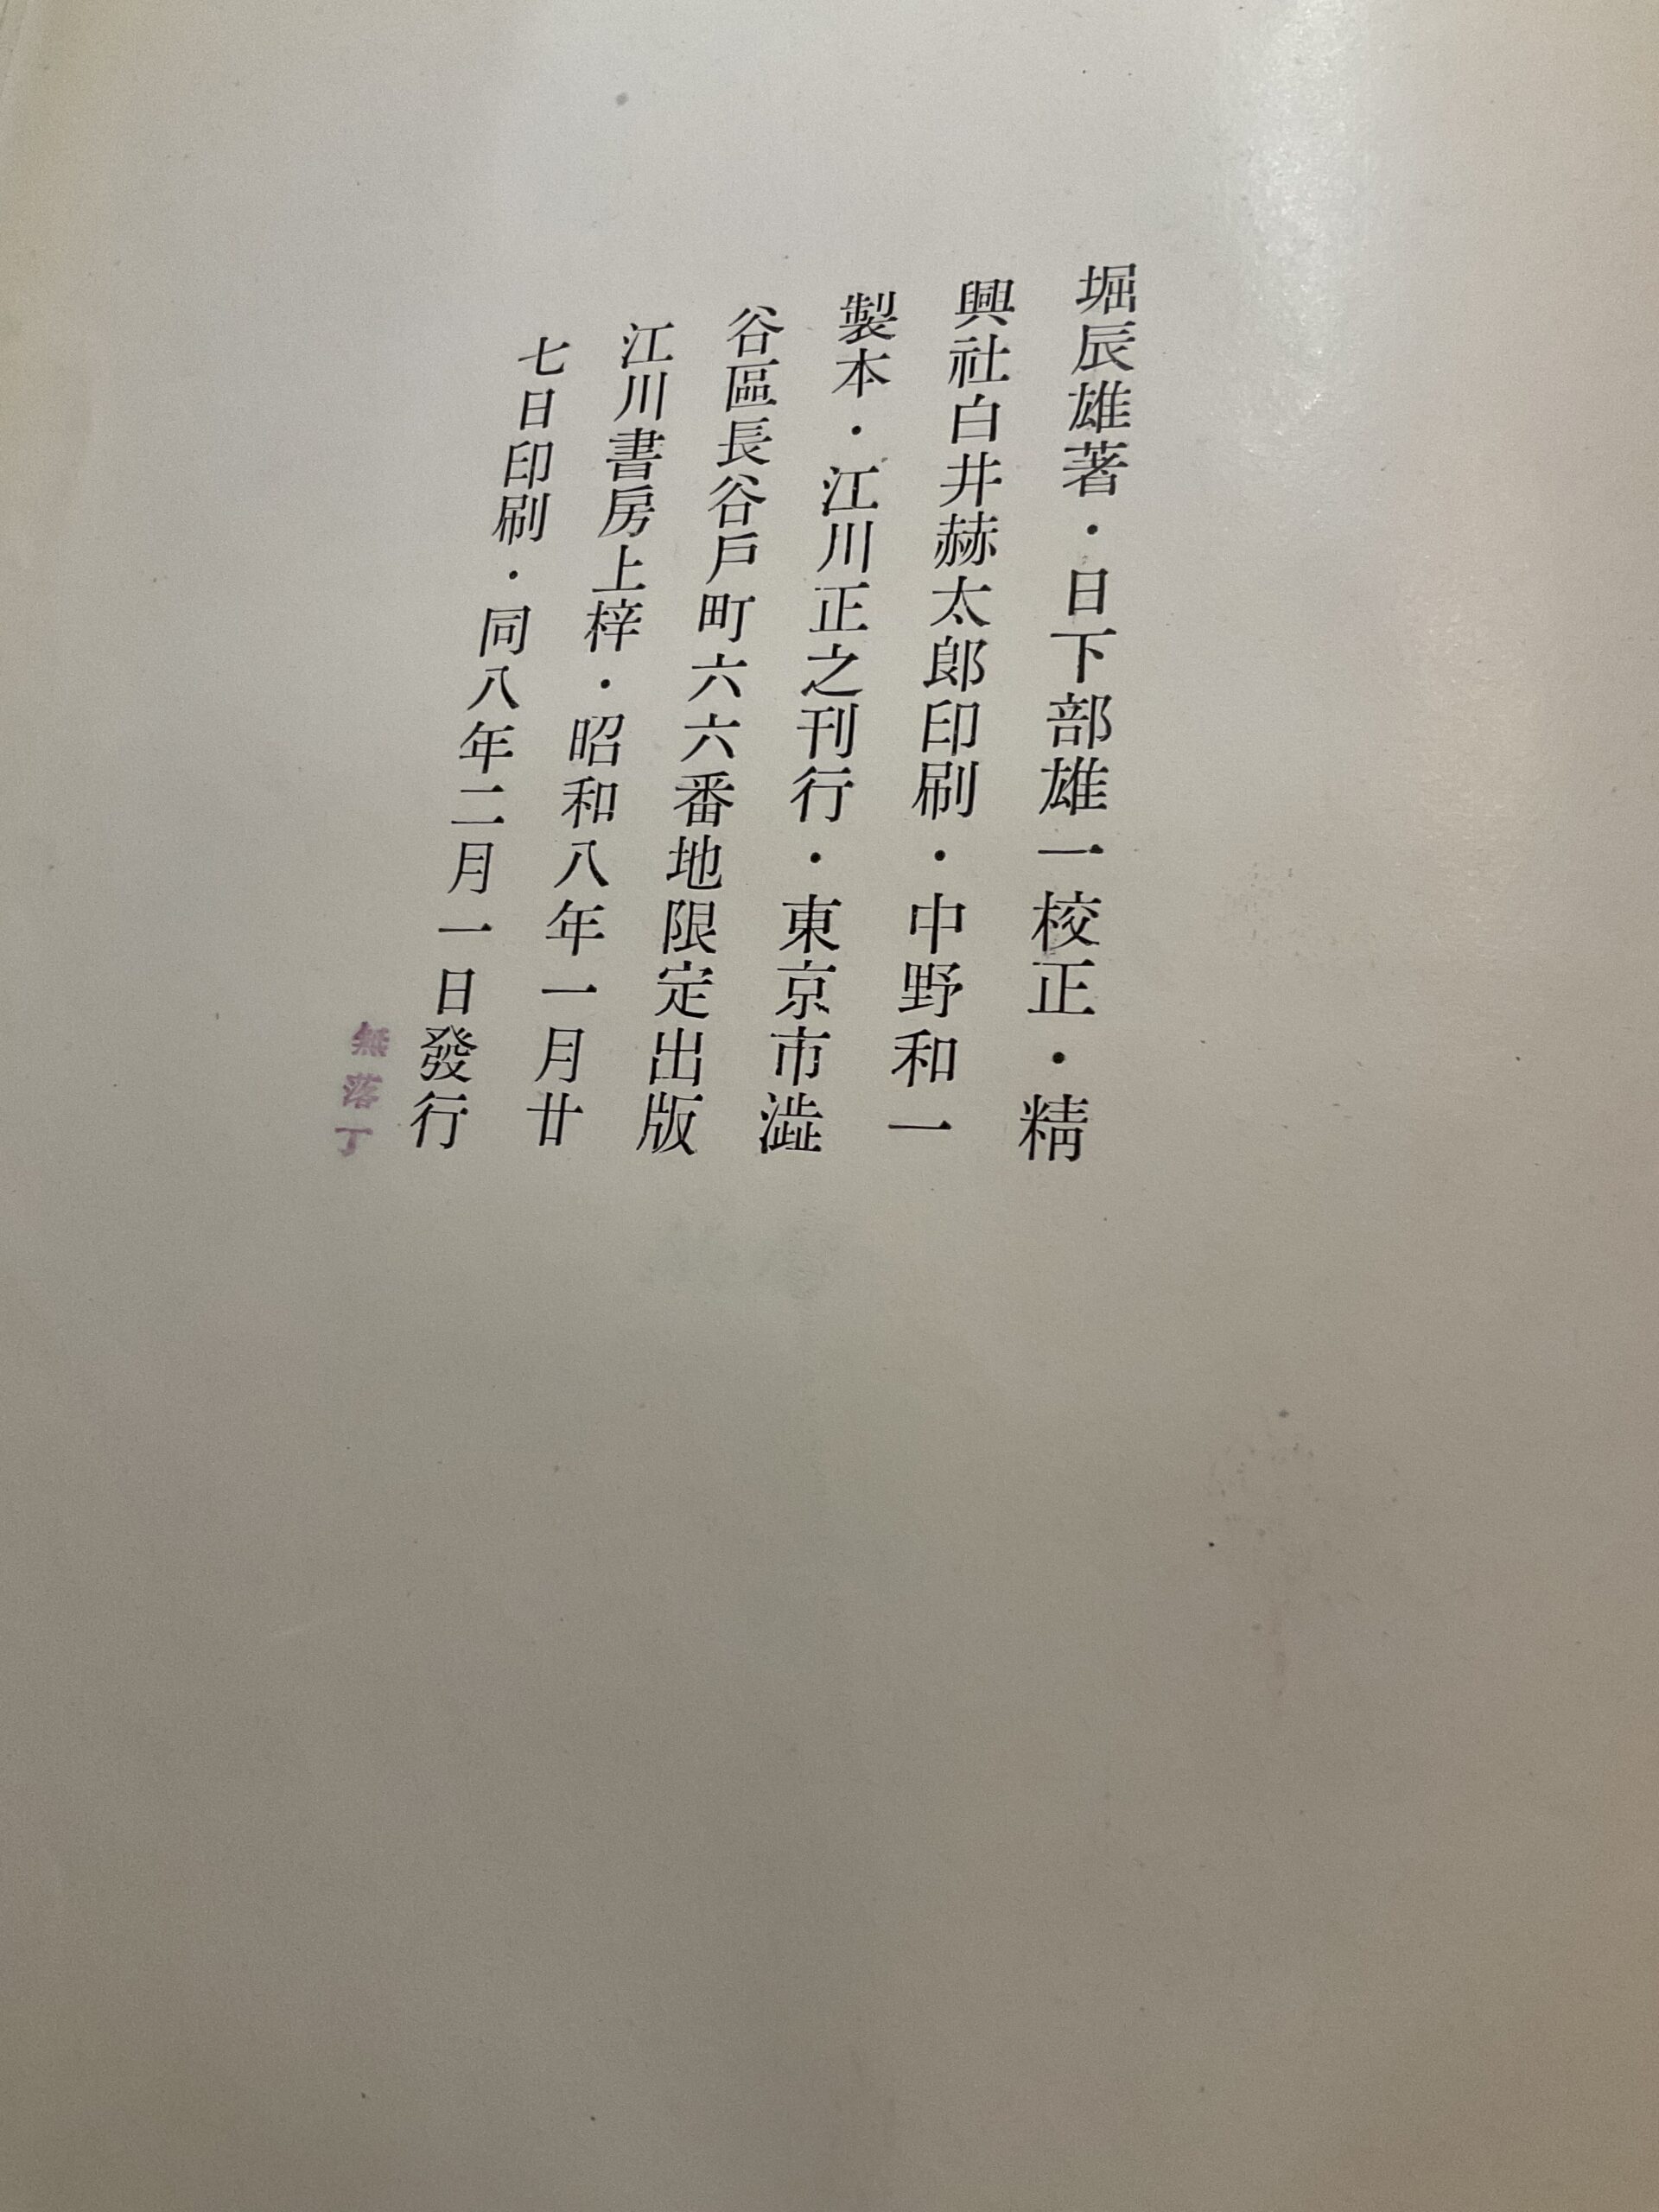 堀辰雄著・日下部雄一校正・精
興社白井赫太郎印刷・中野和一
製本・江川正之刊行・東京市澁
谷區長谷戸町六六番地限定出版
江川書房上梓・昭和八年一月廿
七日印刷・同八年二月一日發行
無落丁